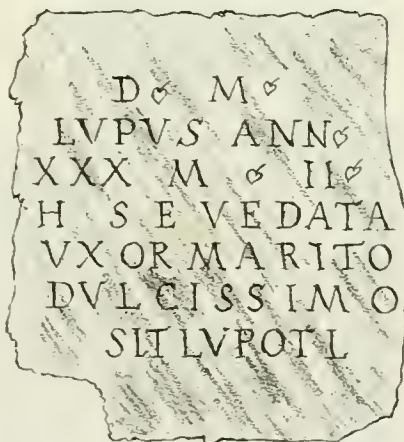 D❧ M❧
LVPVS ANN❧
XXX M ❧ II❧
H S E VEDATA
VXOR MARITO
DVLCISSIMO
SIT LVPO T L